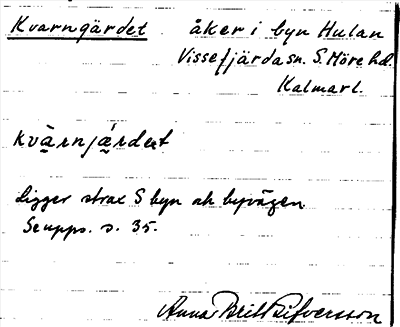 Kvarngärdet åker i byn Hulan
Vissefjärda sn. S. Möre hd.
Kalmar l.
kvàrnjǽrdet
Ligger strax S byn och byvägen
Se upps. s. 35.
Anna Britt Silfversson